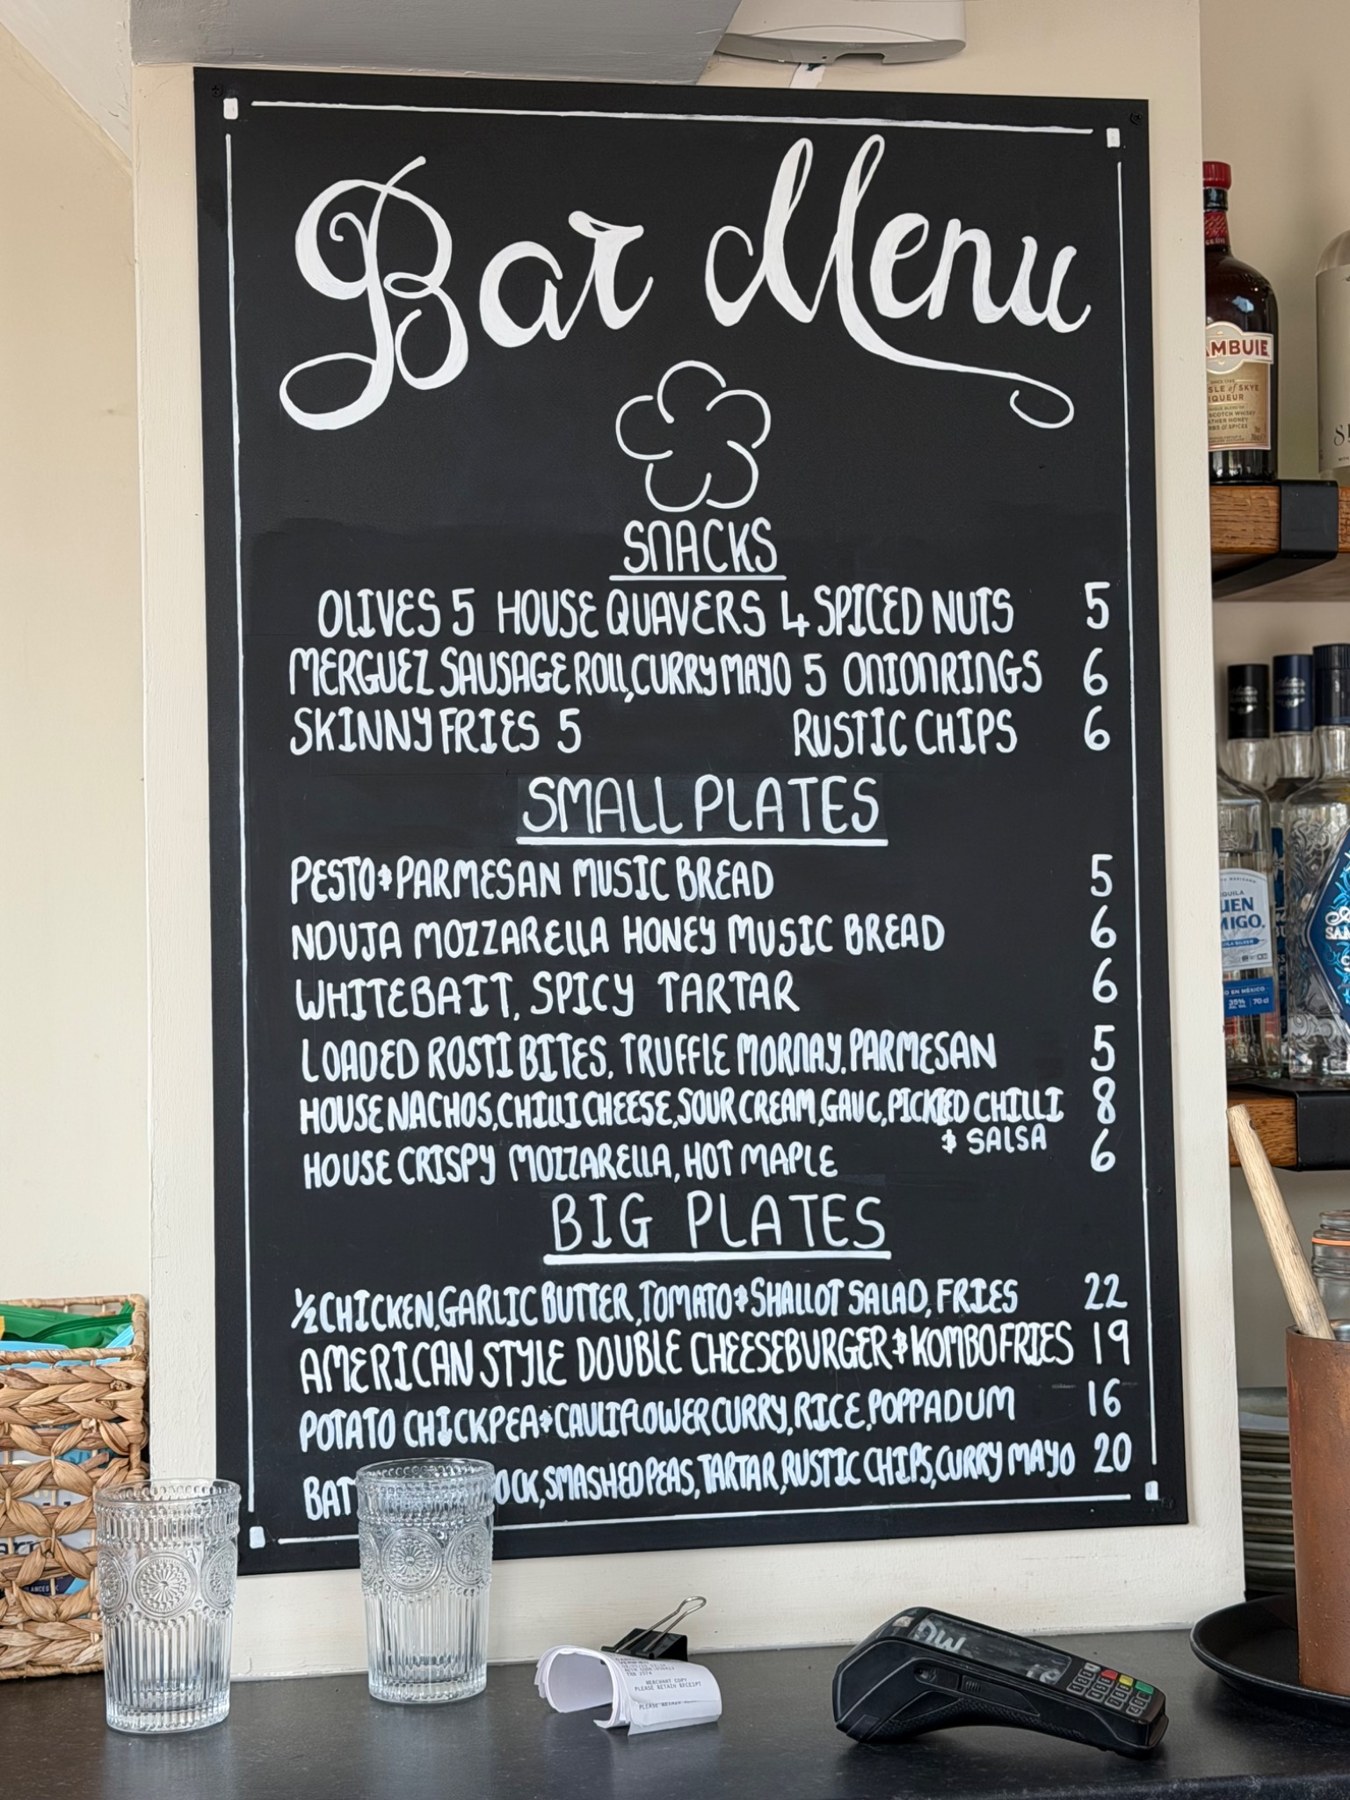 Bar Menu
SNACKS
OLIVES 5 HOUSE QUAVERS 4 SPICED NUTS 5
MERGUEZ SAUSAGE ROLL, CURRY MAYO 5 ONION RINGS 6
SKINNY FRIES 5 RUSTIC CHIPS 6
SMALL PLATES
PESTO & PARMESAN MUSIC BREAD 5
NDUJA MOZZARELLA HONEY MUSIC BREAD 6
WHITEBAIT, SPICY TARTAR 6
LOADED ROSTI BITES, TRUFFLE MORNAY, PARMESAN 5
HOUSE NACHOS, CHILLI CHEESE, SOUR CREAM, GAUC, PICKLED CHILLI 8
& SALSA
HOUSE CRISPY MOZZARELLA, HOT MAPLE 6
BIG PLATES
½ CHICKEN, GARLIC BUTTER, TOMATO & SHALLOT SALAD, FRIES 22
AMERICAN STYLE DOUBLE CHEESEBURGER & KOMBO FRIES 19
POTATO CHICKPEA & CAULIFLOWER CURRY, RICE, POPPADUM 16
SMASHED PEAS, TARTAR, RUSTIC CHIPS, CURRY MAYO 20
MBUIE
ISLE of SKYE
LIQUEUR
UEN
MIGO.
35% 70 cl
SAN
MERCHANT COPY
PLEASE RETAIN RECEIPT